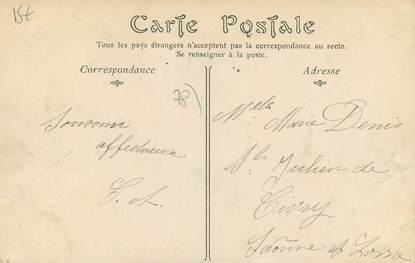 15t
Carte Postale
Tous les pays étrangers n'acceptent pas la correspondance au recto.
Se renseigner à la poste.
Correspondance
Adresse
78)
Souvenir
affectueux
Melle
Marie Denis
St Julien de
Civry
Saône et Loire